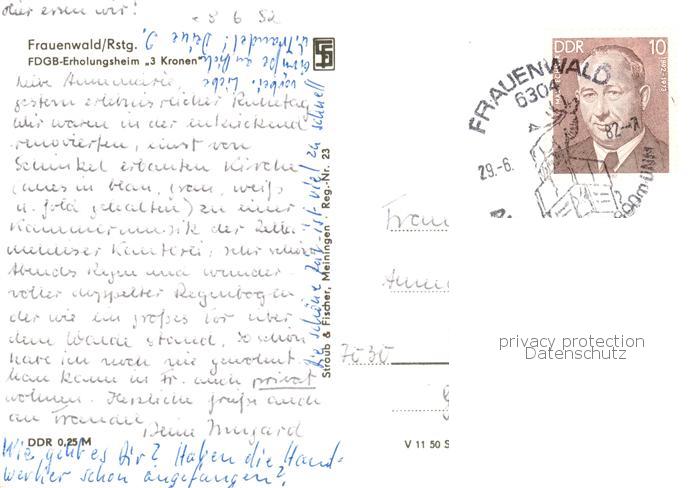 Hier essen wir!
5 6 82
Frauenwald/Rstg.
FDGB-Erholungsheim „3 Kronen"
Liebe Annemarie,
gestern erlebnisreicher Ruhetag
Wir waren in der entzückend
renovierten, einst von
Schinkel erbauten Kirche
(alles in blau, grau, weiß
u. gold gehalten) zu einer
Kammermusik der Zella
mehliser Kantorei, sehr schön
Abends Regen und wunder-
voller doppelter Regenbogen
der wie ein großes Tor über
dem Walde stand. So schön
habe ich noch nie gewohnt.
Man kann in Fr. auch privat
wohnen. Herzliche Grüße auch
an Traudel
Deine Irmgard
Wie geht es Dir? Haben die Hand-
werker schon angefangen?
Die schöne Zeit ist viel zu schnell
vorbei. Liebe
Grüße an Dich
u. Traudel! Deine J.
DDR 0,25 M
Straub & Fischer, Meiningen · Reg.-Nr. 23
V 11 50 S
DDR 10
1902-1973
FRAUENWALD
6304
29.-6.
82--7
Frau
Anne
7030
privacy protection
Datenschutz